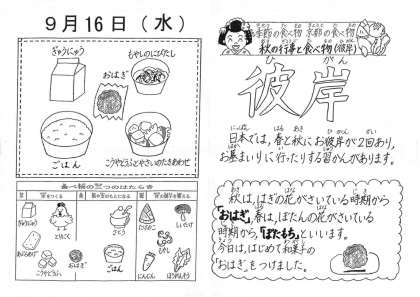 9月16日（水）
ぎゅうにゅう
もやしのにびたし
おはぎ
ごはん
こうやどうふとやさいのたきあわせ
食べ物の三つのはたらき
ぎゅうにゅう
とりにく
あぶらあげ
こうやどうふ
さとう
ごはん
しいたけ
にんじん
ほうれんそう
季節の食べ物 京都の食べ物
秋の行事と食べ物(彼岸)
ひ がん
彼岸
にっぽん はる あき ひがん かい
日本では、春と秋にお彼岸が2回あり、
はか い しゅう
お墓まいりに行ったりする習かんがあります。
秋は、はぎの花がさいている時期から
「おはぎ」、春は、ぼたんの花がさいている
時期から、「ぼたもち」といいます。
今日は、はじめて和菓子の
「おはぎ」をつけました。